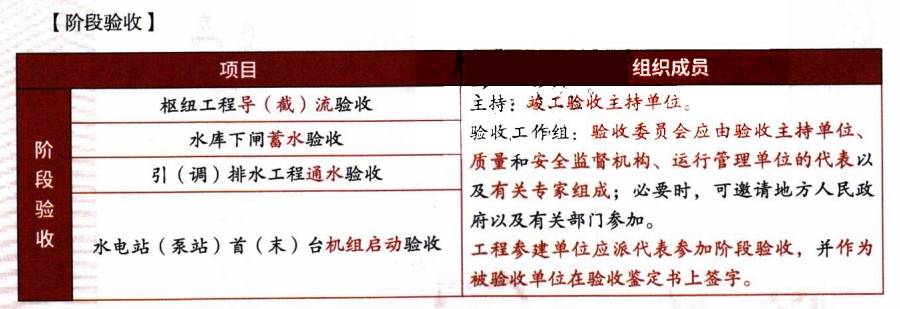 【阶段验收】
项目
组织成员
阶段验收
枢纽工程导（截）流验收
水库下闸蓄水验收
引（调）排水工程通水验收
水电站（泵站）首（末）台机组启动验收
主持：竣工验收主持单位。
验收工作组：验收委员会应由验收主持单位、
质量和安全监督机构、运行管理单位的代表以
及有关专家组成；必要时，可邀请地方人民政
府以及有关部门参加。
工程参建单位应派代表参加阶段验收，并作为
被验收单位在验收鉴定书上签字。